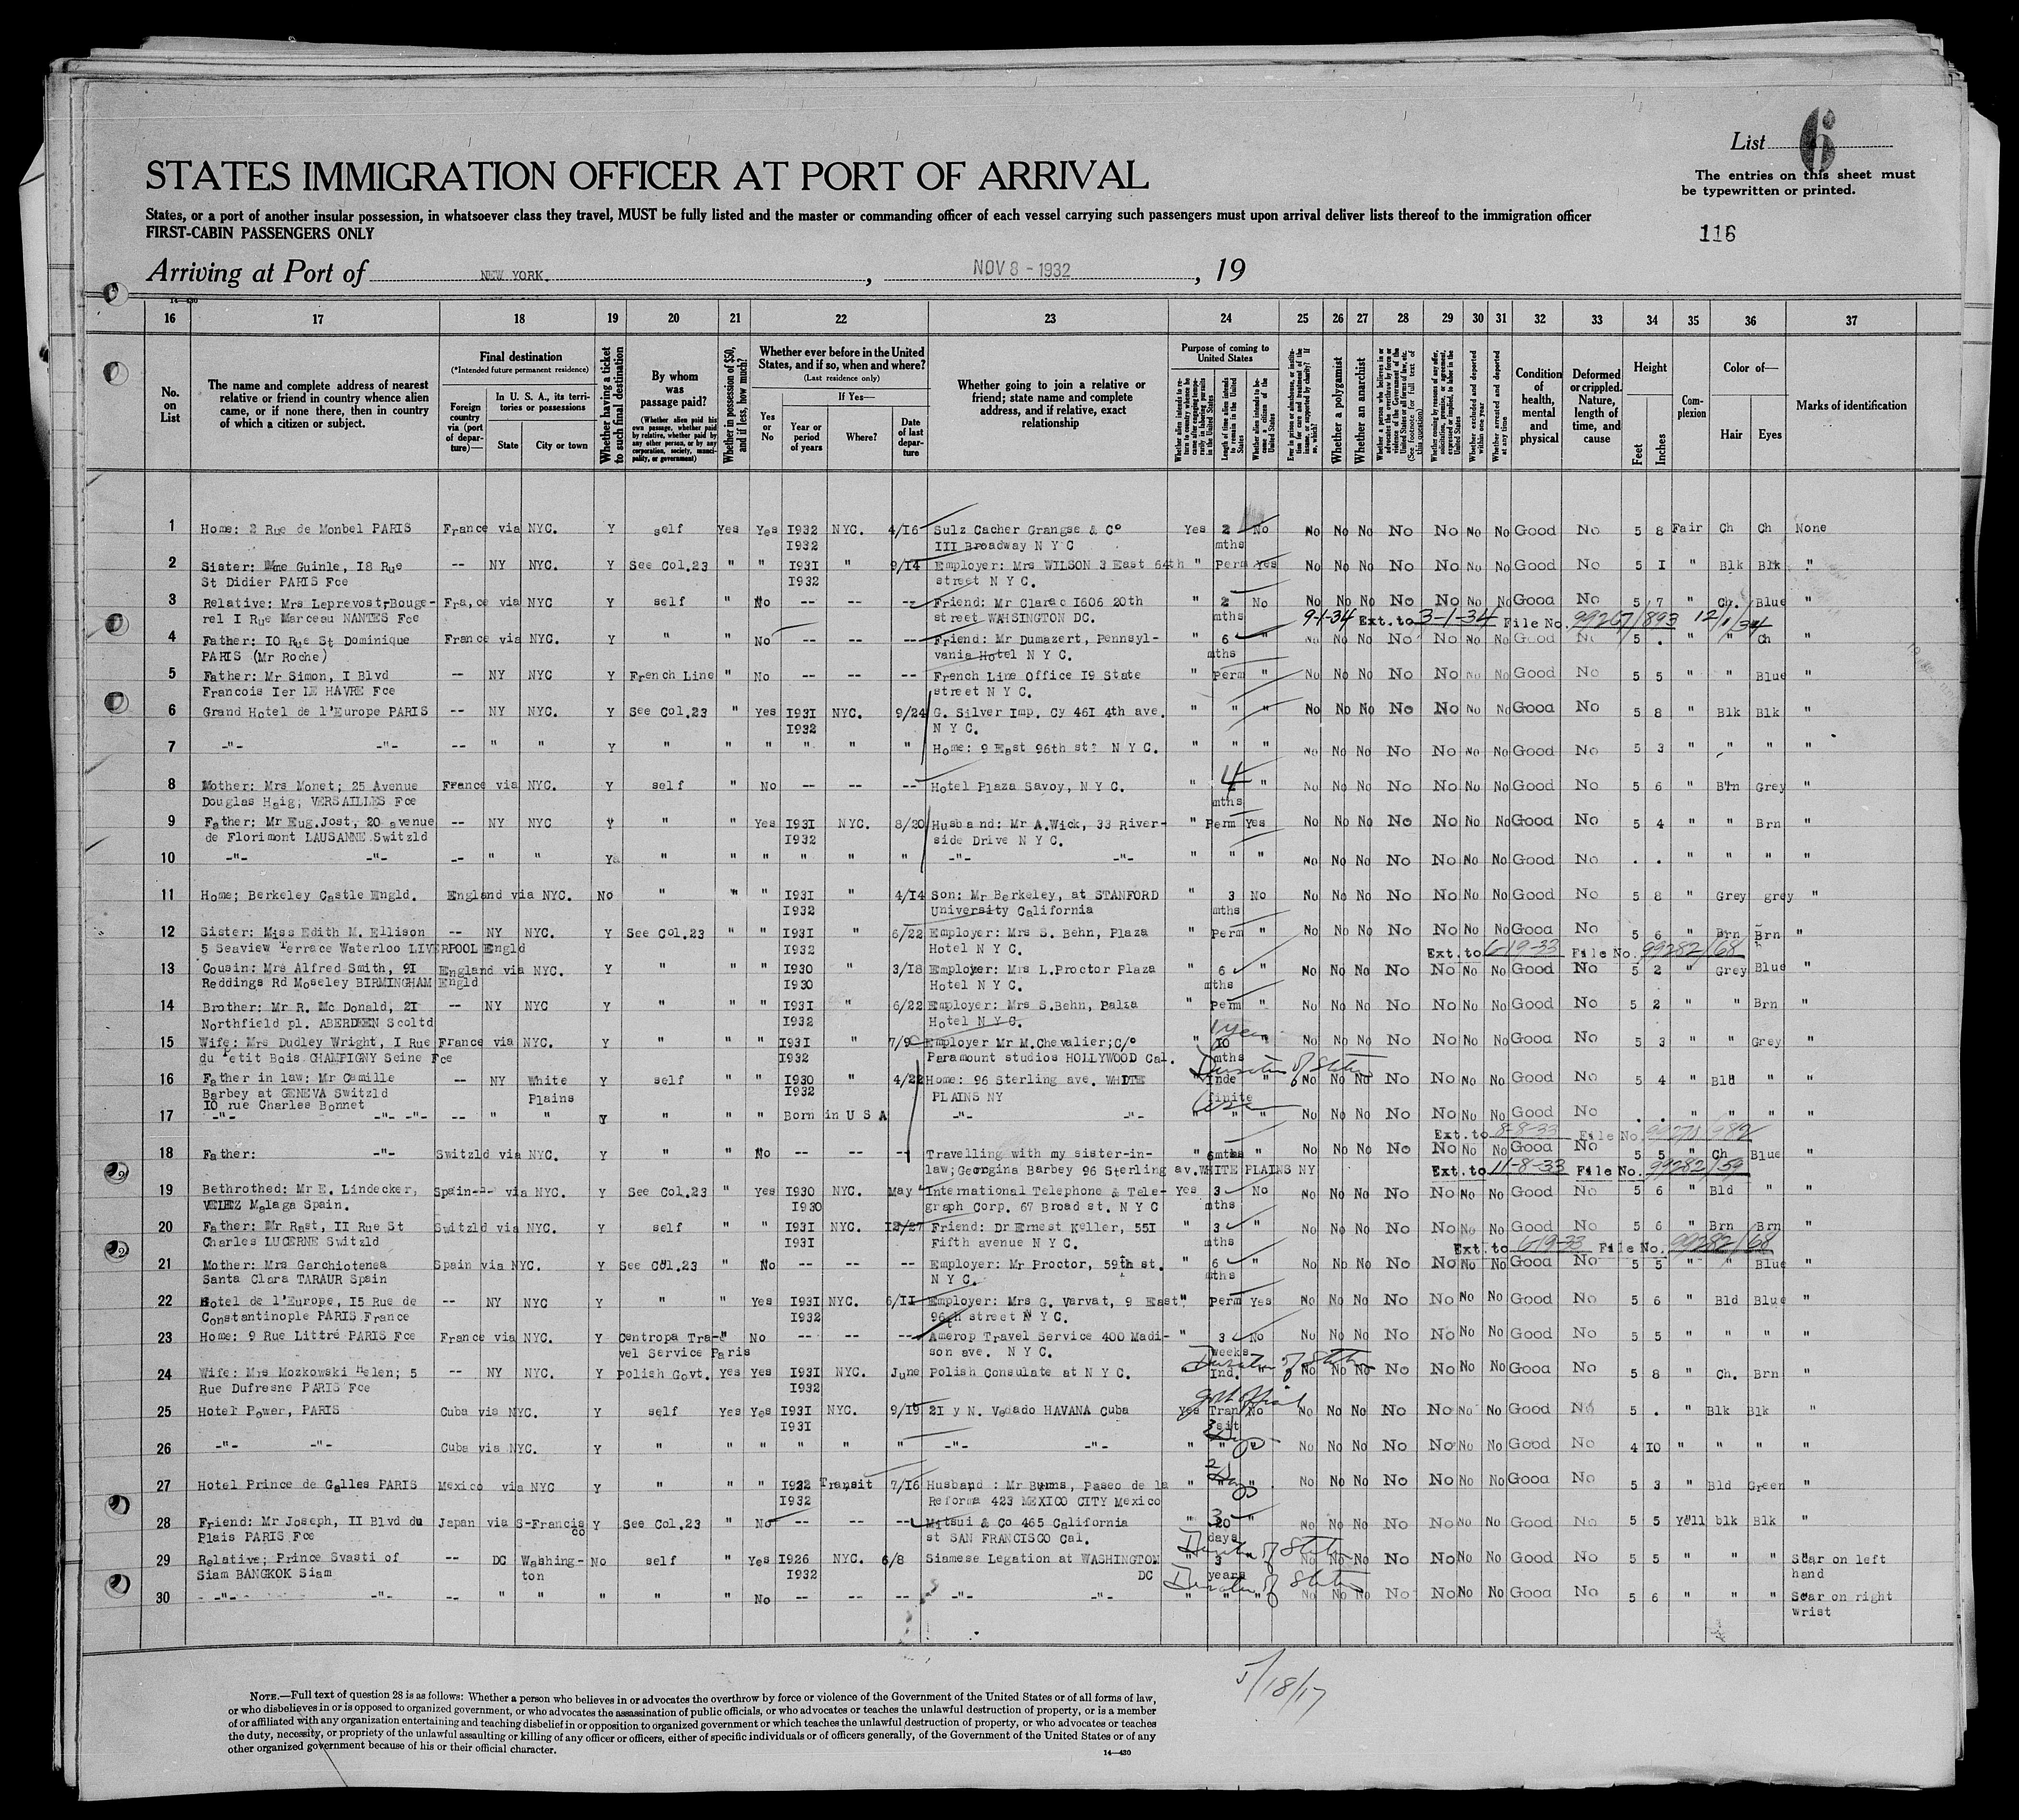 List 6
STATES IMMIGRATION OFFICER AT PORT OF ARRIVAL
The entries on this sheet must
be typewritten or printed.
States, or a port of another insular possession, in whatsoever class they travel, MUST be fully listed and the master or commanding officer of each vessel carrying such passengers must upon arrival deliver lists thereof to the immigration officer
FIRST-CABIN PASSENGERS ONLY
116
Arriving at Port of NEW YORK. , NOV 8 - 1932 , 19
14—430
16 17 18 19 20 21 22 23 24 25 26 27 28 29 30 31 32 33 34 35 36 37
No. on List
The name and complete address of nearest relative or friend in country whence alien came, or if none there, then in country of which a citizen or subject.
Final destination
(*Intended future permanent residence)
Foreign country via (port of departure)—
In U. S. A., its territories or possessions
State City or town
Whether having a ticket to such final destination
By whom was passage paid?
(Whether alien paid his own passage, whether paid by relative, whether paid by any other person, or by any corporation, society, municipality, or government)
Whether in possession of $50, and if less, how much?
Whether ever before in the United States, and if so, when and where?
(Last residence only)
Yes or No
If Yes—
Year or period of years Where? Date of last departure
Whether going to join a relative or friend; state name and complete address, and if relative, exact relationship
Purpose of coming to United States
Length of time alien intends to remain in the United States
Whether alien intends to become a citizen of the United States
Whether a polygamist
Whether an anarchist
Whether excluded and deported within one year
Whether arrested and deported at any time
Condition of health, mental and physical
Deformed or crippled. Nature, length of time, and cause
Height
Feet Inches
Complexion
Color of—
Hair Eyes
Marks of identification
1 Home: 2 Rue de Monbel PARIS France via NYC. Y self Yes Yes I932 NYC. 4/I6 Sulz Cacher Grangse & Co Yes 2 No No No No No No No No Good No 5 8 Fair Ch Ch None
I932 III Broadway N Y C mths
2 Sister: Mme Guinle, I8 Rue -- NY NYC. Y See Col.23 " " I931 " 9/I4 Employer: Mrs WILSON 3 East 64th " Perm Yes No No No No No No No Good No 5 I " Blk Blk "
St Didier PARIS Fce I932 street N Y C.
3 Relative: Mrs Leprevost,Bouge- Fra,ce via NYC Y self " No -- -- -- Friend: Mr Clarac I606 20th " 2 No No No No No No No No Good No 5 7 " Ch. Blue "
rel I Rue Marceau NANTES Fce street WAHSINGTON DC. mths 9-1-34 Ext. to 3-1-34 File No. 99267/893
4 Father: IO Rue St Dominique France via NYC. Y " " No -- -- -- Friend: Mr Dumazert, Pennsyl- " 6 " No No No No No No No Good No 5 . " " Ch "
PARIS (Mr Roche) vania Hotel N Y C. mths
5 Father: Mr Simon, I Blvd -- NY NYC Y French Line " No -- -- -- French Line Office I9 State " Perm " No No No No No No No Good No 5 5 " " Blue "
Francois Ier LE HAVRE Fce street N Y C.
6 Grand Hotel de l'Europe PARIS -- NY NYC. Y See Col.23 " Yes I93I NYC. 9/24 G. Silver Imp. Cy 46I 4th ave. " " " No No No No No No No Good No 5 8 " Blk Blk "
I932 N Y C.
7 -"- -"- -- " " Y " " " " " " Home: 9 East 96th st: N Y C. " " " No No No No No No No Good No 5 3 " " " "
8 Mother: Mrs Monet; 25 Avenue France via NYC. Y self " No -- -- -- Hotel Plaza Savoy, N Y C. " 4 " No No No No No No No Good No 5 6 " Brn Grey "
Douglas Haig; VERSAILLES Fce mths
9 Father: Mr Eug.Jost, 20 avenue -- NY NYC Y " " Yes I93I NYC. 8/20 Husband: Mr A.Wick, 33 River- " Perm Yes No No No No No No No Good No 5 4 " " Brn "
de Florimont LAUSANNE Switzld I932 side Drive N Y C.
10 -"- -"- -- " " Ya " " " " " " -"- -"- " " " No No No No No No No Good No . . " " " "
11 Home; Berkeley Castle Engld. England via NYC. No " " " I93I " 4/I4 Son: Mr Berkeley, at STANFORD " 3 No No No No No No No No Good No 5 8 " Grey grey "
I932 University California mths
12 Sister: Miss Edith M. Ellison -- NY NYC. Y See Col.23 " " I93I " 6/22 Employer: Mrs S. Behn, Plaza " Perm " No No No No No No No Good No 5 6 " Brn Brn "
5 Seaview Terrace Waterloo LIVERPOOL Engld I932 Hotel N Y C. Ext. to 6-19-33 File No. 99282/68
13 Cousin: Mrs Alfred Smith, 9I England via NYC. Y " " " I930 " 3/I8 Employer: Mrs L.Proctor Plaza " 6 " No No No No No No No Good No 5 2 " Grey Blue "
Reddings Rd Moseley BIRMINGHAM Engld I930 Hotel N Y C. mths
14 Brother: Mr R. Mc Donald, 2I -- NY NYC Y " " " I93I " 6/22 Employer: Mrs S.Behn, Palza " Perm " No No No No No No No Good No 5 2 " " Brn "
Northfield pl. ABERDEEN Scoltd I932 Hotel N Y C.
15 Wife: Mrs Dudley Wright, I Rue France via NYC. Y " " " I93I " 7/9 Employer Mr M.Chevalier;C/o " 1 year IO " No No No No No No No Good No 5 3 " " Grey "
du Petit Bois CHAMPIGNY Seine Fce I932 Paramount studios HOLLYWOOD Cal. mths
16 Father in law: Mr Camille -- NY White Y self " " I930 " 4/22 Home: 96 Sterling ave. WHITE " Duration of Status Inde " No No No No No No No Good No 5 4 " Bld " "
Barbey at GENEVA Switzld Plains I932 PLAINS NY finite
IO rue Charles Bonnet
17 -"- -"- -"- -- " " Y " " " Born in U S A -"- -"- " " " No No No No No No No Good No . . " " " "
Ext. to 8-8-33 File No.
18 Father: -"- Switzld via NYC. Y " " No -- -- -- Travelling with my sister-in- " 6mths " No No No No No No No Good No 5 5 " Ch Blue "
law;Georgina Barbey 96 Sterling av.WHITE PLAINS NY Ext. to 11-8-33 File No. 99282/59
19 Bethrothed: Mr E. Lindecker, Spain--- via NYC. Y See Col.23 " Yes I930 NYC. May International Telephone & Tele- Yes 3 No No No No No No No No Good No 5 6 " Bld " "
VELEZ Malaga Spain. I930 graph Corp. 67 Broad st. N Y C mths
20 Father: Mr Rast, II Rue St Switzld via NYC. Y self " " I93I NYC. I2/27 Friend: Dr Ernest Keller, 55I " 3 " No No No No No No No Good No 5 6 " Brn Brn "
Charles LUCERNE Switzld I93I Fifth avenue N Y C. mths Ext. to 6-19-33 File No. 99282/68
21 Mother: Mrs Garchiotenea Spain via NYC. Y See Col.23 " No -- -- -- Employer: Mr Proctor, 59th st. " 6 " No No No No No No No Good No 5 5 " " Blue "
Santa Clara TARAUR Spain N Y C. mths
22 Hotel de l'Europe, I5 Rue de -- NY NYC Y " " Yes I93I NYC. 6/II Employer: Mrs G. Varvat, 9 East " Perm Yes No No No No No No No Good No 5 6 " Bld Blue "
Constantinople PARIS France I932 96th street N Y C.
23 Home: 9 Rue Littré PARIS Fce France via NYC. Y Centropa Tra- " No -- -- -- Amerop Travel Service 400 Madi- " 3 No No No No No No No No Good No 5 5 " " " "
vel Service Paris son ave. N Y C. weeks
24 Wife: Mrs Mozkowski Helen; 5 -- NY NYC Y Polish Govt. Yes Yes I93I NYC. June Polish Consulate at N Y C. Duration of Status Ind. " No No No No No No No Good No 5 8 " Ch. Brn "
Rue Dufresne PARIS Fce I932
25 Hotel Power, PARIS Cuba via NYC. Y self Yes Yes I93I NYC. 9/I9 2I y N. Vedado HAVANA Cuba Yes Tran No No No No No No No No Good No 5 . " Blk Blk "
I93I sit
26 -"- -"- Cuba via NYC. Y " " " " " " -"- -"- " " No No No No No No No Good No 4 IO " " " "
27 Hotel Prince de Galles PARIS Mexico via NYC Y " " " I922 Transit 7/I6 Husband : Mr Burns, Paseo de la " " " No No No No No No No Good No 5 3 " Bld Green "
I932 Reforma 423 MEXICO CITY Mexico
28 Friend: Mr Joseph, II Blvd du Japan via S-Francis Y See Col.23 " No -- -- -- Mitsui & Co 465 California " 20 " No No No No No No No Good No 5 5 Yell blk Blk "
Plais PARIS Fce co st SAN FRANCISCO Cal. days
29 Relative; Prince Svasti of -- DC Washing- No self " Yes I926 NYC. 6/8 Siamese Legation at WASHINGTON " Duration of Status 3 No No No No No No No Good No 5 5 " " " Scar on left
Siam BANGKOK Siam ton I932 DC years hand
30 -"- -"- -- " " " " " No -- -- -- -"- -"- Duration of Status " " " No No No No No No No Good No 5 6 " " " Scar on right
wrist
5/18/17
NOTE.—Full text of question 28 is as follows: Whether a person who believes in or advocates the overthrow by force or violence of the Government of the United States or of all forms of law,
or who disbelieves in or is opposed to organized government, or who advocates the assassination of public officials, or who advocates or teaches the unlawful destruction of property, or is a member
of or affiliated with any organization entertaining and teaching disbelief in or opposition to organized government or which teaches the unlawful destruction of property, or who advocates or teaches
the duty, necessity, or propriety of the unlawful assaulting or killing of any officer or officers, either of specific individuals or of officers generally, of the Government of the United States or of any
other organized government because of his or their official character.
14—430